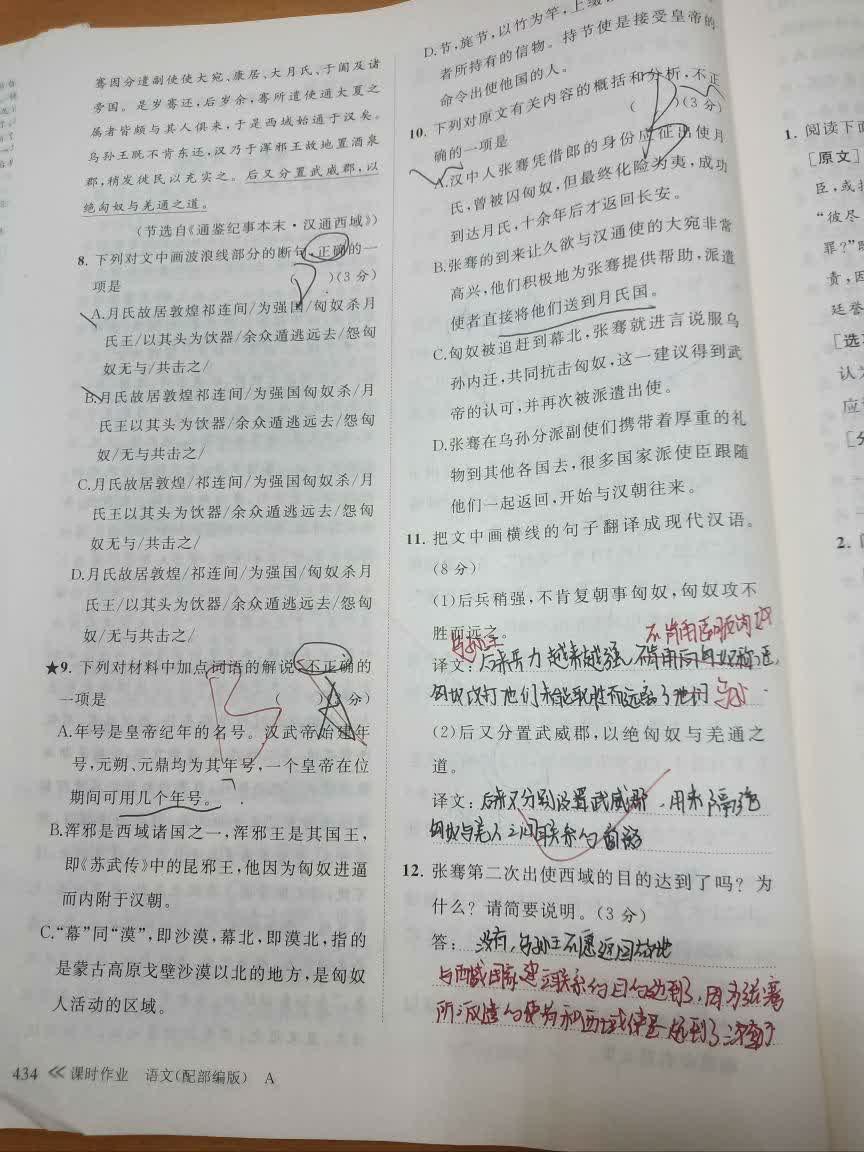 骞因分遣副使使大宛、康居、大月氏、于阗及诸
旁国。是岁骞还,后岁余,骞所遣使通大夏之
属者皆颇与其人俱来,于是西域始通于汉矣。
乌孙王既不肯东还,汉乃于浑邪王故地置酒泉
郡,稍发徙民以充实之。后又分置武威郡,以
绝匈奴与羌通之道。
(节选自《通鉴纪事本末·汉通西域》)
8. 下列对文中画波浪线部分的断句,正确的一
项是 ( )(3分)
A.月氏故居敦煌祁连间/为强国/匈奴杀月
氏王/以其头为饮器/余众遁逃远去/怨匈
奴无与/共击之/
B.月氏故居敦煌祁连间/为强国匈奴杀/月
氏王以其头为饮器/余众遁逃远去/怨匈
奴/无与共击之/
C.月氏故居敦煌/祁连间/为强国匈奴杀/月
氏王以其头为饮器/余众遁逃远去/怨匈
奴无与/共击之/
D.月氏故居敦煌/祁连间/为强国/匈奴杀月
氏王/以其头为饮器/余众遁逃远去/怨匈
奴/无与共击之/
★9. 下列对材料中加点词语的解说,不正确的
一项是 ( )(3分)
A.年号是皇帝纪年的名号。汉武帝始建年
号,元朔、元鼎均为其年号,一个皇帝在位
期间可用几个年号。
B.浑邪是西域诸国之一,浑邪王是其国王,
即《苏武传》中的昆邪王,他因为匈奴进逼
而内附于汉朝。
C.“幕”同“漠”,即沙漠,幕北,即漠北,指的
是蒙古高原戈壁沙漠以北的地方,是匈奴
人活动的区域。
434 《 课时作业 语文(配部编版) A
D.节,旄节,以竹为竿,上缀
者所持有的信物。持节使是接受皇帝的
命令出使他国的人。
10. 下列对原文有关内容的概括和分析,不正
确的一项是 ( )(3分)
A.汉中人张骞凭借郎的身份应征出使月
氏,曾被囚匈奴,但最终化险为夷,成功
到达月氏,十余年后才返回长安。
B.张骞的到来让久欲与汉通使的大宛非常
高兴,他们积极地为张骞提供帮助,派遣
使者直接将他们送到月氏国。
C.匈奴被追赶到幕北,张骞就进言说服乌
孙内迁,共同抗击匈奴,这一建议得到武
帝的认可,并再次被派遣出使。
D.张骞在乌孙分派副使们携带着厚重的礼
物到其他各国去,很多国家派使臣跟随
他们一起返回,开始与汉朝往来。
11. 把文中画横线的句子翻译成现代汉语。
(8分)
(1)后兵稍强,不肯复朝事匈奴,匈奴攻不
胜而远之。
乌孙王
译文:后来兵力越来越强,不肯再向匈奴称臣,
匈奴攻打他们未能取胜而远离了他们 乌孙
(2)后又分置武威郡,以绝匈奴与羌通之
道。
译文:后来又分别设置武威郡,用来隔绝
匈奴与羌人之间联系的道路
12. 张骞第二次出使西域的目的达到了吗?为
什么?请简要说明。(3分)
答:没有,乌孙王不愿返回故地
与西域国家建立联系的目的达到了,因为张骞
所派遣的使者和西域使臣
1. 阅读下面
[原文]
臣,或
“彼尽
罪?”
责,因
廷誉
[选
认为
应
2.